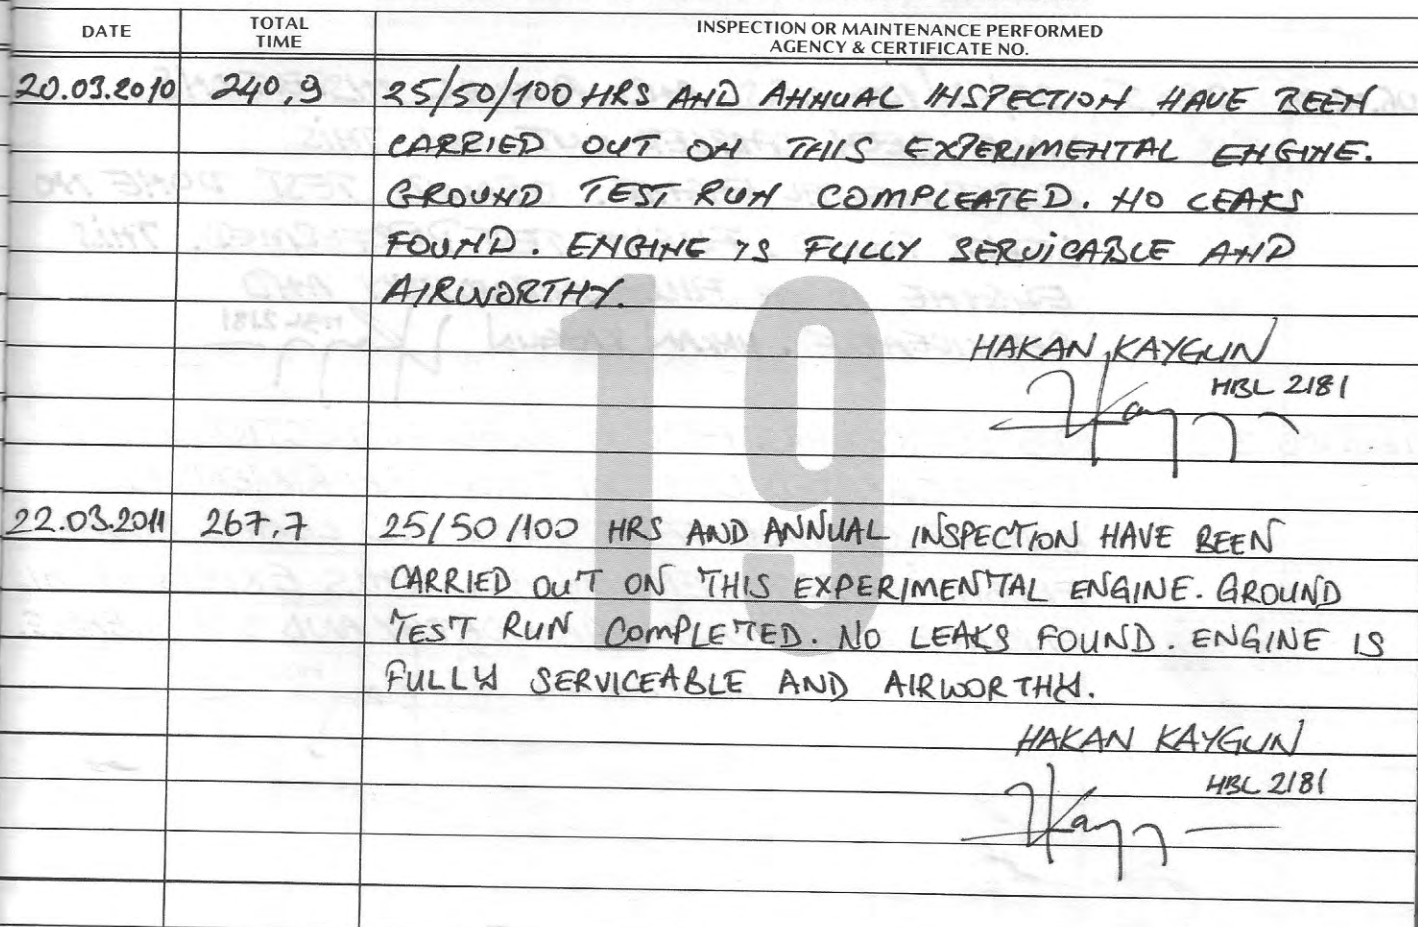 DATE TOTAL TIME INSPECTION OR MAINTENANCE PERFORMED
AGENCY & CERTIFICATE NO.
20.03.2010 240,9 25/50/100 HRS AND ANNUAL INSPECTION HAVE BEEN
CARRIED OUT ON THIS EXPERIMENTAL ENGINE.
GROUND TEST RUN COMPLEATED. NO LEAKS
FOUND. ENGINE IS FULLY SERVICABLE AND
AIRWORTHY.
HAKAN KAYGUN
HBL 2181
19
22.03.2011 267,7 25/50/100 HRS AND ANNUAL INSPECTION HAVE BEEN
CARRIED OUT ON THIS EXPERIMENTAL ENGINE. GROUND
TEST RUN COMPLETED. NO LEAKS FOUND. ENGINE IS
FULLY SERVICEABLE AND AIRWORTHY.
HAKAN KAYGUN
HBL 2181